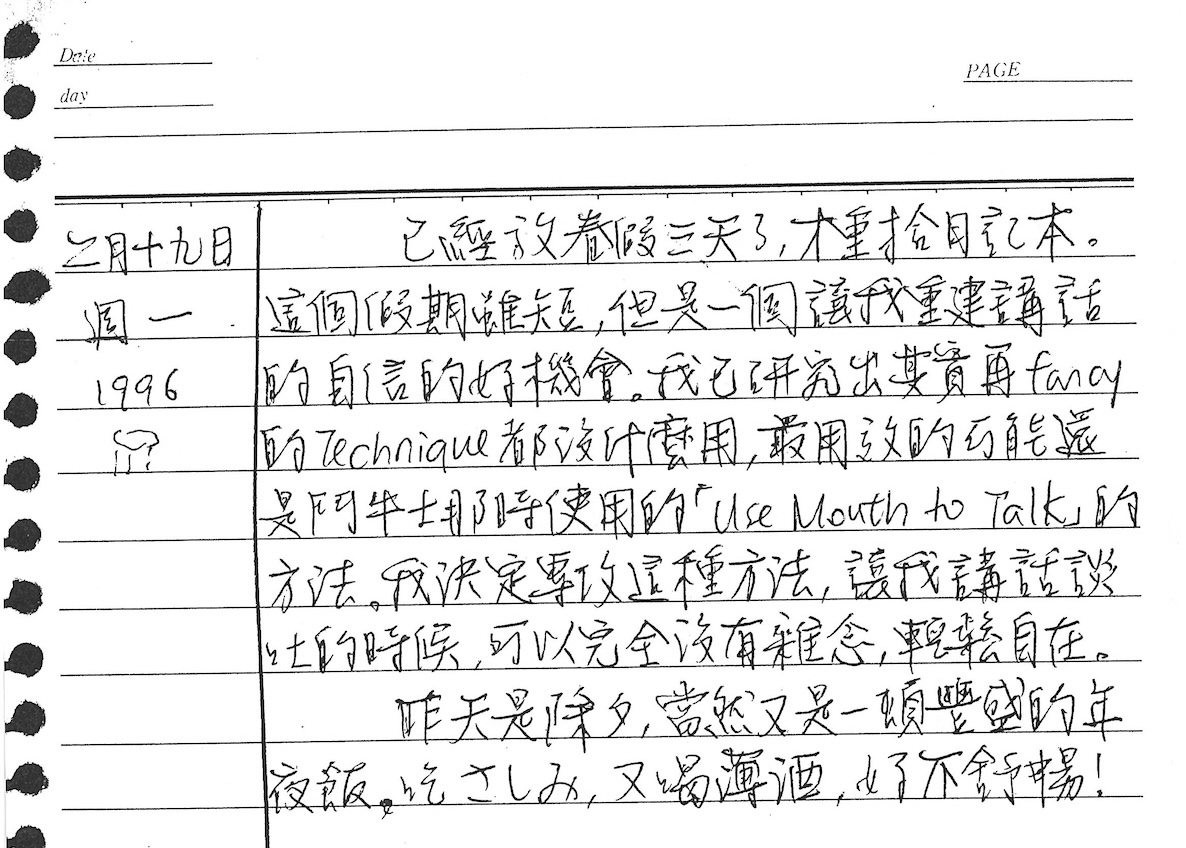 Date
day
PAGE
二月十九日
週一
1996
已經放春假三天了,才重拾日記本。
這個假期雖短,但是一個讓我重建講話
的自信的好機會。我已研究出其實再fancy
的Technique都沒什麼用,最用效的可能還
是鬥牛士那時使用的「Use Mouth to Talk」的
方法。我決定專攻這種方法,讓我講話談
吐的時候,可以完全沒有雜念,輕鬆自在。
昨天是除夕,當然又是一頓豐盛的年
夜飯。吃さしみ,又喝薄酒,好不舒暢!